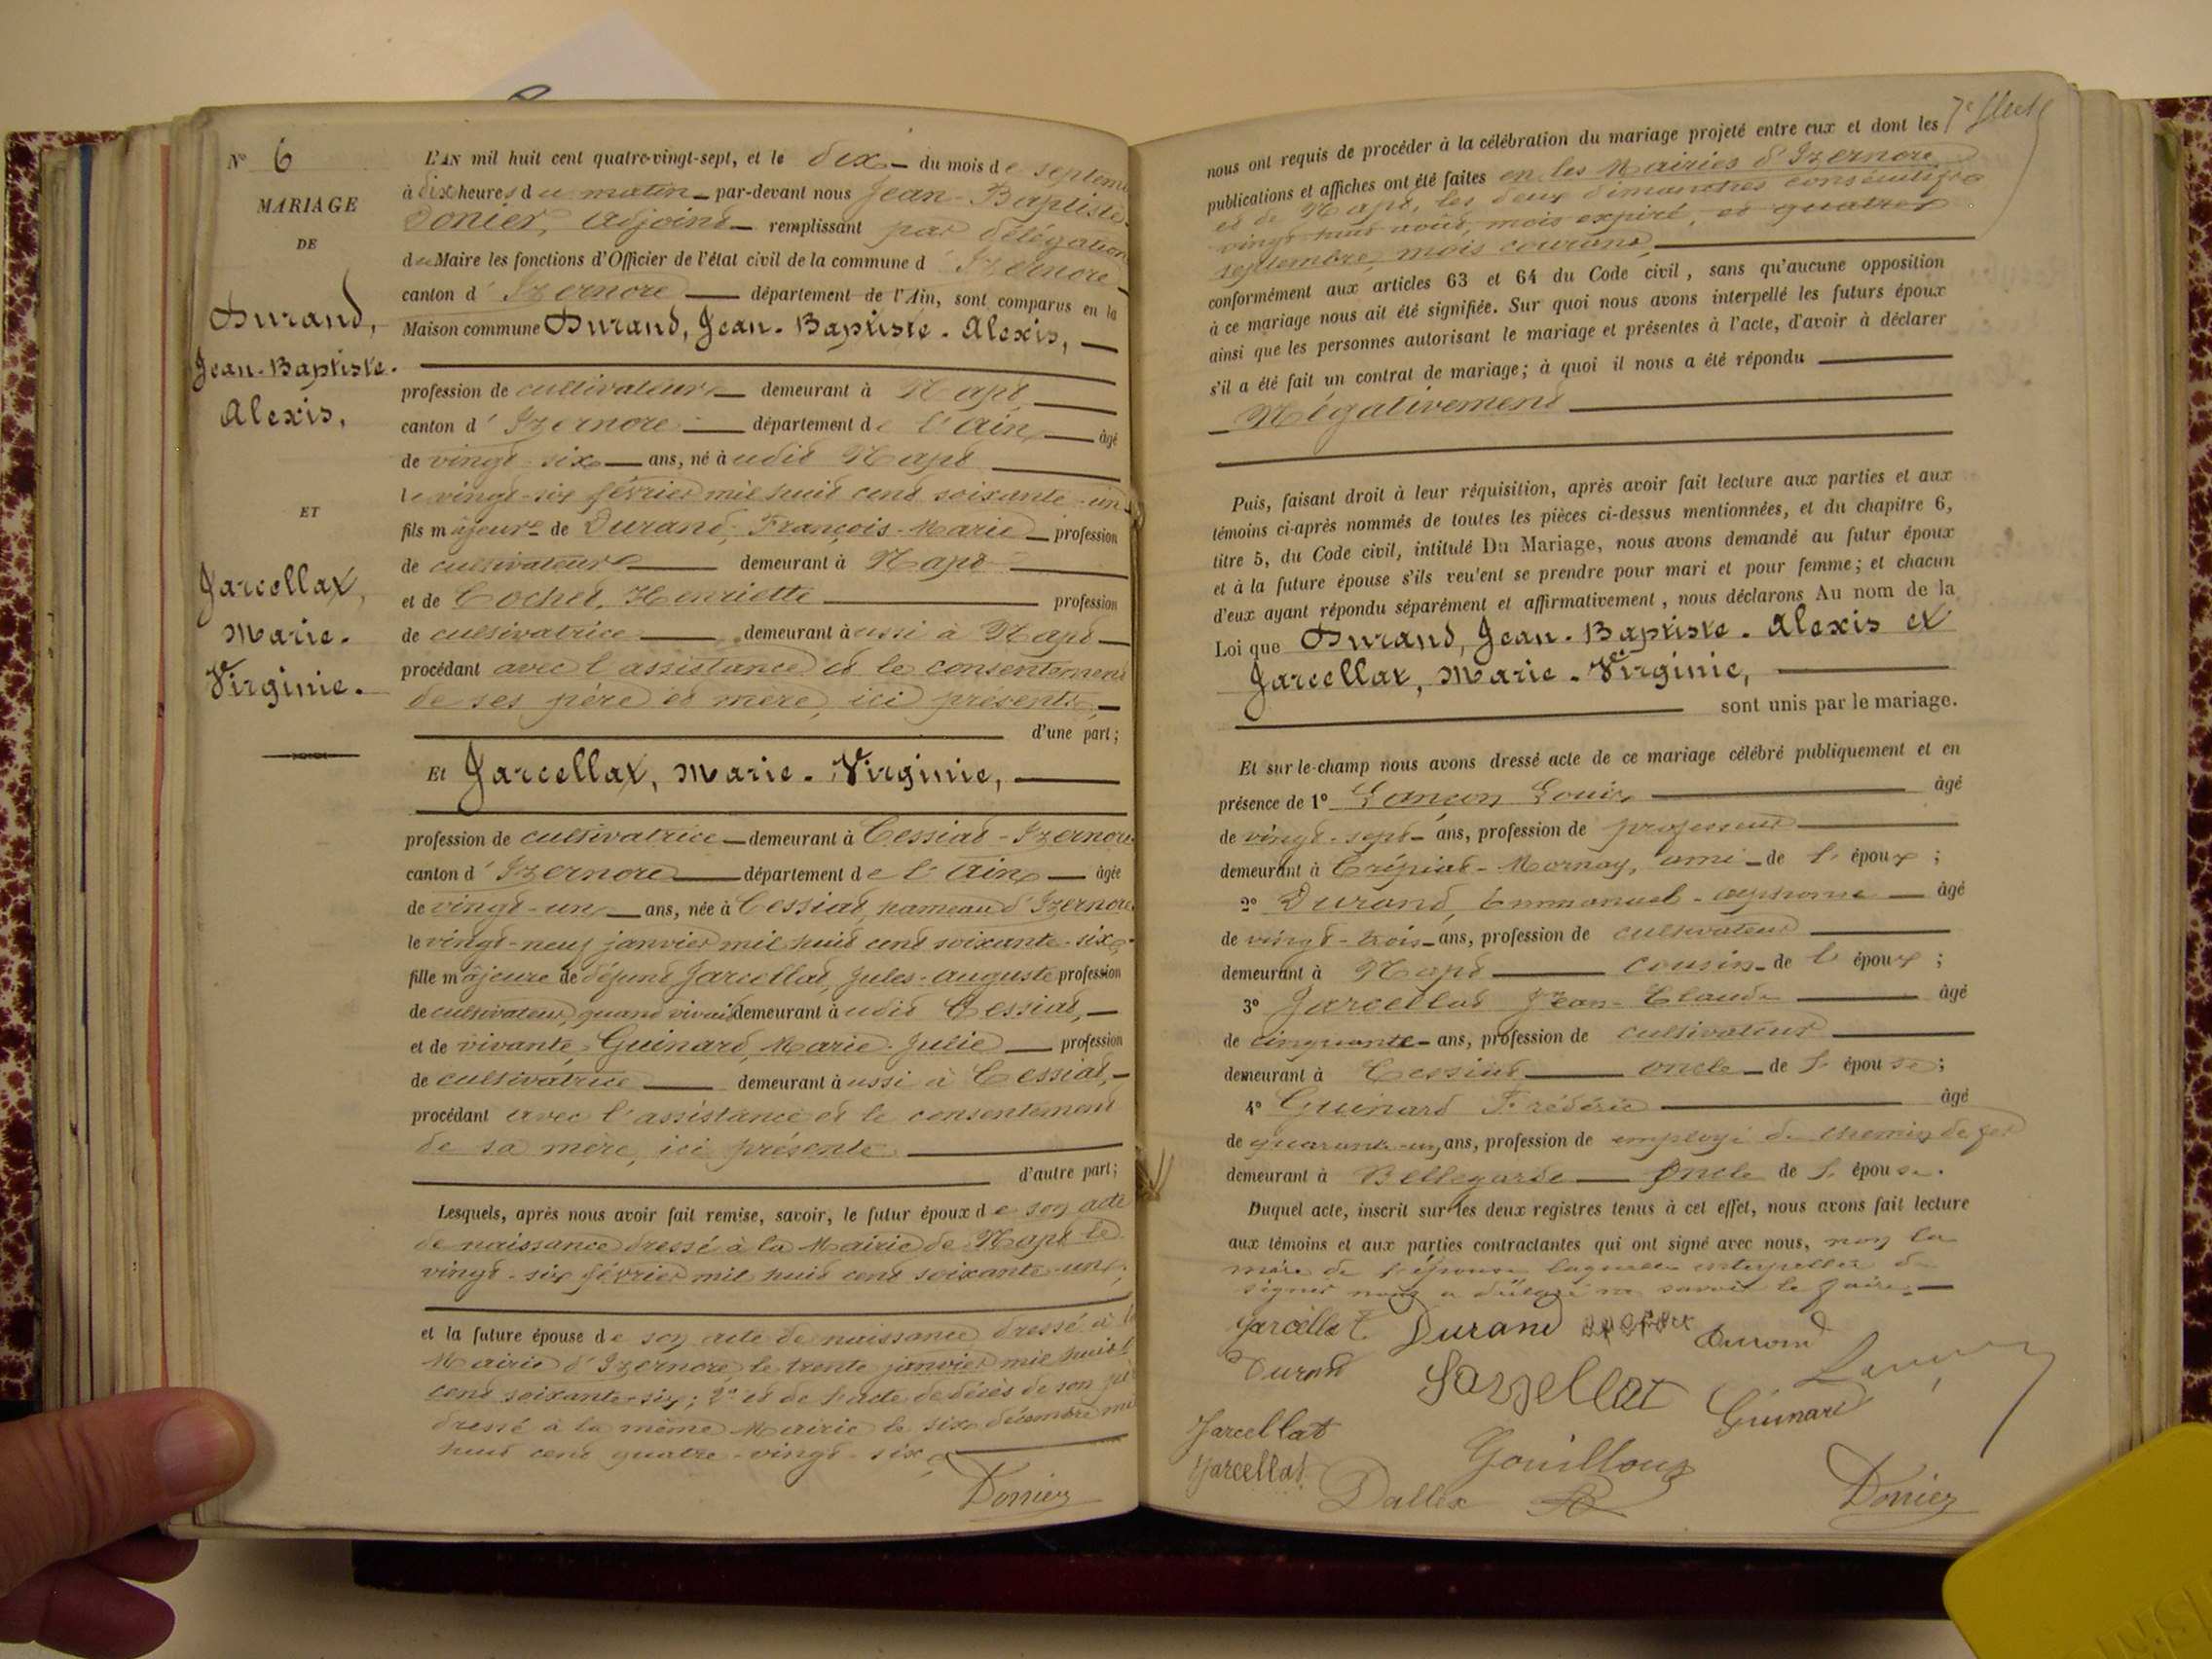 N° 6
MARIAGE
DE
Durand,
Jean-Baptiste-
Alexis,
ET
Jarcellat,
Marie-
Virginie.
L'AN mil huit cent quatre-vingt-sept, et le dix du mois de septem
à dix heures du matin par-devant nous Jean-Baptiste
Donier, adjoint remplissant par délégation
du Maire les fonctions d'Officier de l'état civil de la commune d'Izernore
canton d'Izernore département de l'Ain, sont comparus en la
Maison commune Durand, Jean-Baptiste-Alexis,
profession de cultivateur demeurant à Napt
canton d'Izernore département de l'Ain âgé
de vingt-six ans, né à udit Napt
le vingt-six février mil huit cent soixante-un
fils majeur de Durand, François-Marie profession
de cultivateur demeurant à Napt
et de Cochet, Henriette profession
de cultivatrice demeurant à ussi à Napt
procédant avec l'assistance et le consentement
de ses père et mère, ici présents,
d'une part;
Et Jarcellat, Marie-Virginie,
profession de cultivatrice demeurant à Cessiat-Izernore
canton d'Izernore département de l'Ain âgée
de vingt-un ans, née à Cessiat, hameau d'Izernore
le vingt-neuf janvier mil huit cent soixante-six
fille majeure de défunt Jarcellat, Jules-Auguste profession
de cultivateur, quand vivait demeurant à udit Cessiat,
et de vivante, Guinard, Marie-Julie profession
de cultivatrice demeurant à ussi à Cessiat,
procédant avec l'assistance et le consentement
de sa mère, ici présente
d'autre part;
Lesquels, après nous avoir fait remise, savoir, le futur époux de son acte
de naissance dressé à la Mairie de Napt le
vingt-six février mil huit cent soixante-un;
et la future épouse de son acte de naissance dressé à la
Mairie d'Izernore, le trente janvier mil huit
cent soixante-six; 2° et de l'acte de décès de son pè
dressé à la même Mairie le six décembre mil
huit cent quatre-vingt-six
Donier
7e
nous ont requis de procéder à la célébration du mariage projeté entre eux et dont les
publications et affiches ont été faites en les Mairies d'Izernore
et de Napt, les deux dimanches consécutifs
vingt-huit août, mois expiré, et quatre
septembre, mois courant,
conformément aux articles 63 et 64 du Code civil, sans qu'aucune opposition
à ce mariage nous ait été signifiée. Sur quoi nous avons interpellé les futurs époux
ainsi que les personnes autorisant le mariage et présentes à l'acte, d'avoir à déclarer
s'il a été fait un contrat de mariage; à quoi il nous a été répondu
Négativement
Puis, faisant droit à leur réquisition, après avoir fait lecture aux parties et aux
témoins ci-après nommés de toutes les pièces ci-dessus mentionnées, et du chapitre 6,
titre 5, du Code civil, intitulé Du Mariage, nous avons demandé au futur époux
et à la future épouse s'ils veulent se prendre pour mari et pour femme; et chacun
d'eux ayant répondu séparément et affirmativement, nous déclarons Au nom de la
Loi que Durand, Jean-Baptiste-Alexis et
Jarcellat, Marie-Virginie,
sont unis par le mariage.
Et sur-le-champ nous avons dressé acte de ce mariage célébré publiquement et en
présence de 1° Lançon Louis, âgé
de vingt-sept ans, profession de professeur
demeurant à Crépiat-Mornay, ami de l'époux;
2° Durand, Emmanuel-Alphonse âgé
de vingt-trois ans, profession de cultivateur
demeurant à Napt cousin de l'époux;
3° Jarcellat Jean-Claude âgé
de cinquante ans, profession de cultivateur
demeurant à Cessiat oncle de l'épouse;
4° Guinard Frédéric âgé
de quarante-un, ans, profession de employé de chemin de fer
demeurant à Bellegarde Oncle de l'épouse.
Duquel acte, inscrit sur les deux registres tenus à cet effet, nous avons fait lecture
aux témoins et aux parties contractantes qui ont signé avec nous, non la
mère de l'épouse laquelle interpellée de
signer nous a déclaré ne savoir le faire.
Jarcellat Durand Durand
Durand Jarcellat
Guinard
Jarcellat
Gouilloux
Jarcellat Dallex Donier